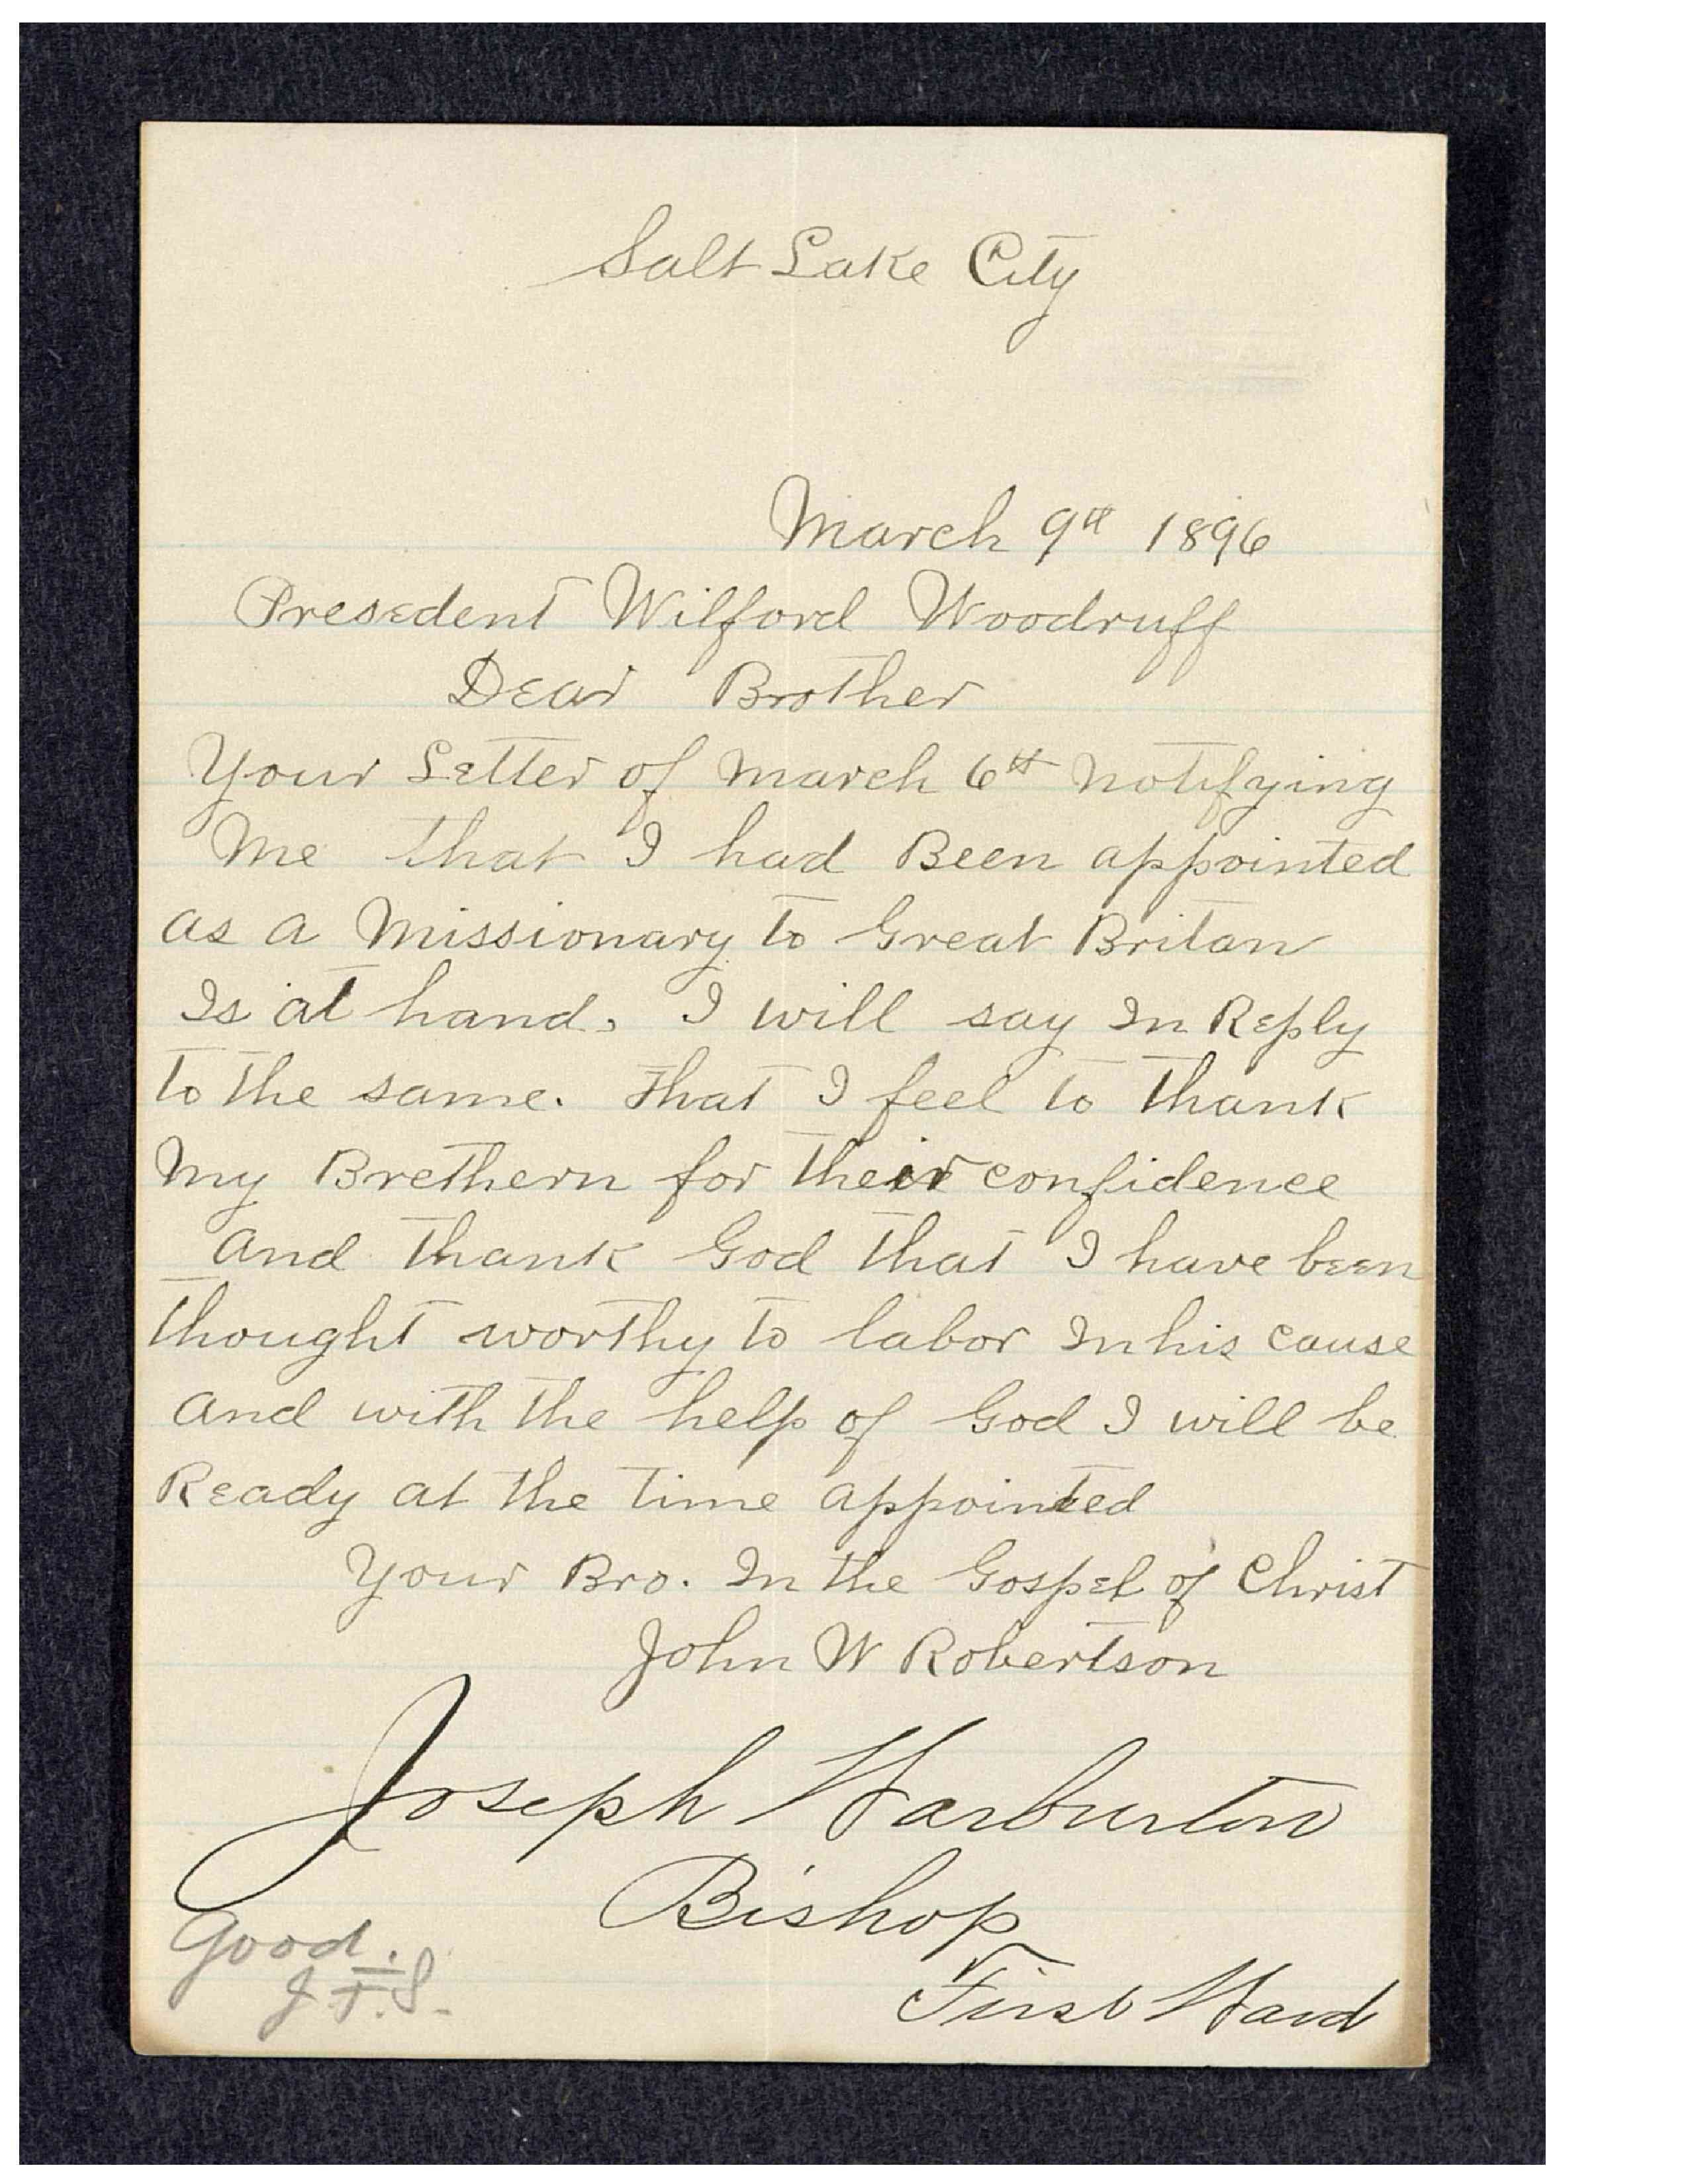 Salt Lake City
March 9th 1896
Presedent Wilford Woodruff
Dear Brother
Your Letter of March 6th notifying
Me that I had Been appointed
as a Missionary to Great Britan
Is at hand. I will say In Reply
to the same. That I feel to thank
My Brethern for their confidence
and thank God that I have been
thought worthy to labor In his cause
and with the help of God I will be
Ready at the time appointed
Your Bro. In the Gospel of Christ
John W Robertson
Joseph Warburton
Bishop
First Ward
Good.
J. F. S.